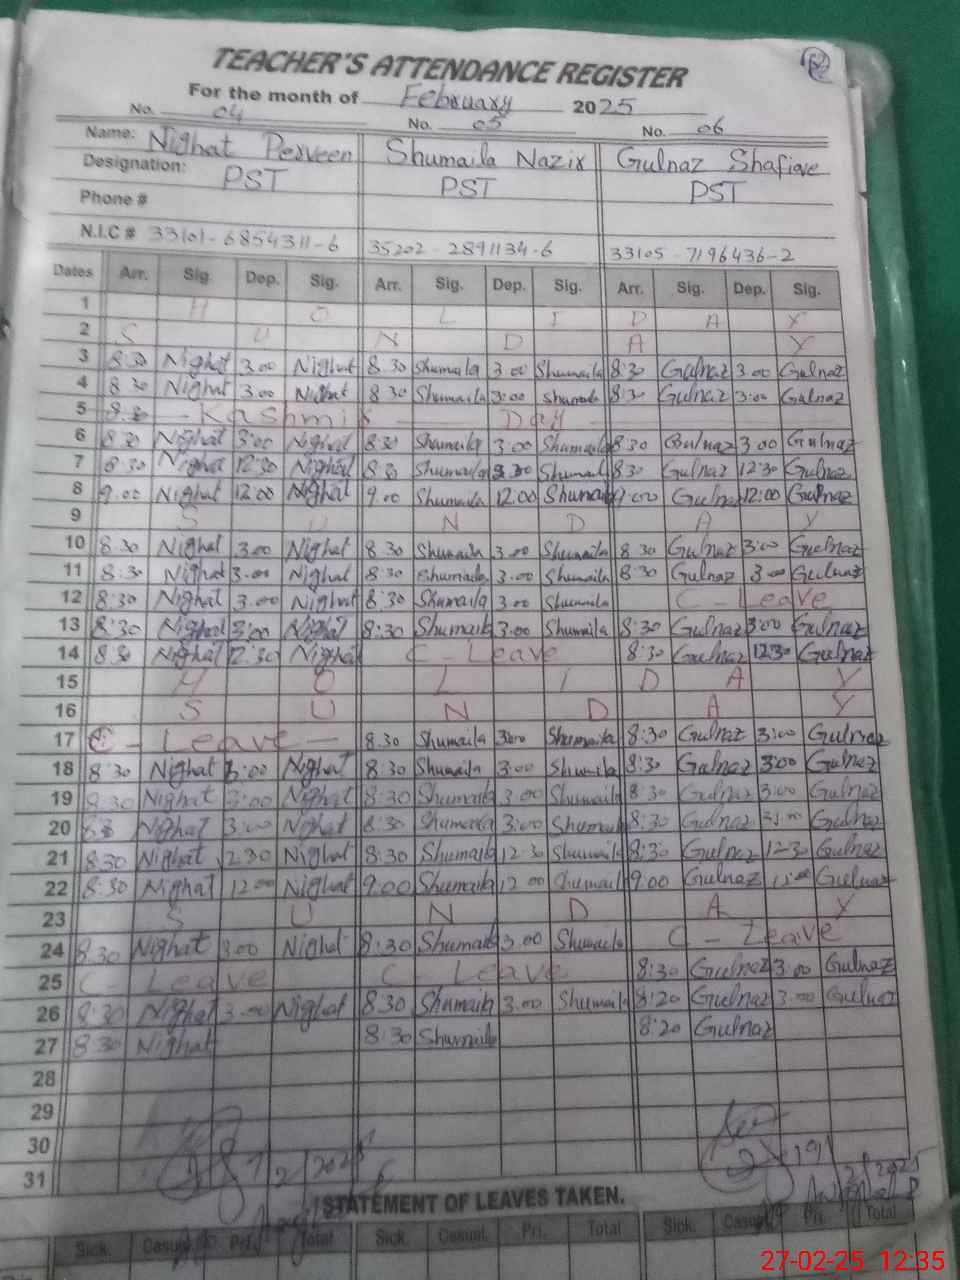 TEACHER'S ATTENDANCE REGISTER
For the month of February 2025
No. 04 No. 05 No. 06
Name: Nighat Perveen Shumaila Nazir Gulnaz Shafique
Designation: PST PST PST
Phone #
N.I.C # 33101-6854311-6 35202-2891134-6 33105-7196436-2
Dates Arr. Sig. Dep. Sig. Arr. Sig. Dep. Sig. Arr. Sig. Dep. Sig.
1 H O L I D A Y
2 S U N D A Y
3 8:30 Nighat 3.00 Nighat 8.30 Shumaila 3.00 Shumaila 8:30 Gulnaz 3.00 Gulnaz
4 8:30 Nighat 3.00 Nighat 8.30 Shumaila 3:00 Shumaila 8:30 Gulnaz 3:00 Gulnaz
5 - Kashmir - Day -
6 8:30 Nighat 3:00 Nighat 8:30 Shumaila 3:00 Shumaila 8:30 Gulnaz 3.00 Gulnaz
7 8:30 Nighat 12:30 Nighat 8:30 Shumaila Shumaila 8:30 Gulnaz 12:30 Gulnaz
8 9.00 Nighat 12:00 Nighat 9.00 Shumaila 12.00 Shumaila 9:00 Gulnaz 12:00 Gulnaz
9 S U N D A Y
10 8:30 Nighat 3.00 Nighat 8.30 Shumaila 3.00 Shumaila 8.30 Gulnaz 3:00 Gulnaz
11 8:30 Nighat 3.00 Nighat 8:30 Shumaila 3.00 Shumaila 8:30 Gulnaz 3.00 Gulnaz
12 8:30 Nighat 3.00 Nighat 8:30 Shumaila 3.00 Shumaila C - Leave
13 8:30 Nighat 3:00 Nighat 8:30 Shumaila 3.00 Shumaila 8:30 Gulnaz 3:00 Gulnaz
14 8:30 Nighat 12:30 Nighat C - Leave 8:30 Gulnaz 12:30 Gulnaz
15 H O L I D A Y
16 S U N D A Y
17 C - Leave - 8.30 Shumaila 3:00 Shumaila 8:30 Gulnaz 3:00 Gulnaz
18 8:30 Nighat 3:00 Nighat 8:30 Shumaila 3:00 Shumaila 8:30 Gulnaz 3:00 Gulnaz
19 8:30 Nighat 3:00 Nighat 8:30 Shumaila 3.00 Shumaila 8:30 Gulnaz 3:00 Gulnaz
20 8:30 Nighat 3:00 Nighat 8:30 Shumaila 3:00 Shumaila 8:30 Gulnaz 3:00 Gulnaz
21 8:30 Nighat 12:30 Nighat 8:30 Shumaila 12:30 Shumaila 8:30 Gulnaz 12:30 Gulnaz
22 8:30 Nighat 12:00 Nighat 9:00 Shumaila 12:00 Shumaila 9:00 Gulnaz Gulnaz
23 S U N D A Y
24 8:30 Nighat 3:00 Nighat 8:30 Shumaila 3.00 Shumaila C - Leave
25 C - Leave C - Leave 8:30 Gulnaz 3:00 Gulnaz
26 8:30 Nighat 3.00 Nighat 8.30 Shumaila 3.00 Shumaila 8:20 Gulnaz 3:00 Gulnaz
27 8:30 Nighat 8:30 Shumaila 8:20 Gulnaz
28
29
30
31
STATEMENT OF LEAVES TAKEN.
Sick. Casual. Pri. Total Sick. Casual. Pri. Total Sick. Casual. Pri. Total
27-02-25 12:35